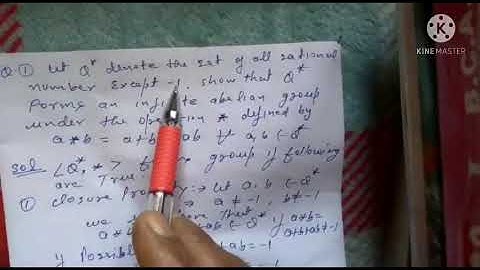 KINEMASTER
Q.① Let Q* denote the set of all rational
number Except -1. show that Q*
Forms an infinite abelian group
under the operation * defined by
a * b = a+b+ab ∀ a, b ∈ Q*
Sol <Q*, *> group if following
are True
① closure Property :→ let a, b ∈ Q*
→ a ≠ -1, b ≠ -1
we that
a * ab ∈ Q* if a*b =
a+b+ab ≠ -1
if Possible +ab = -1